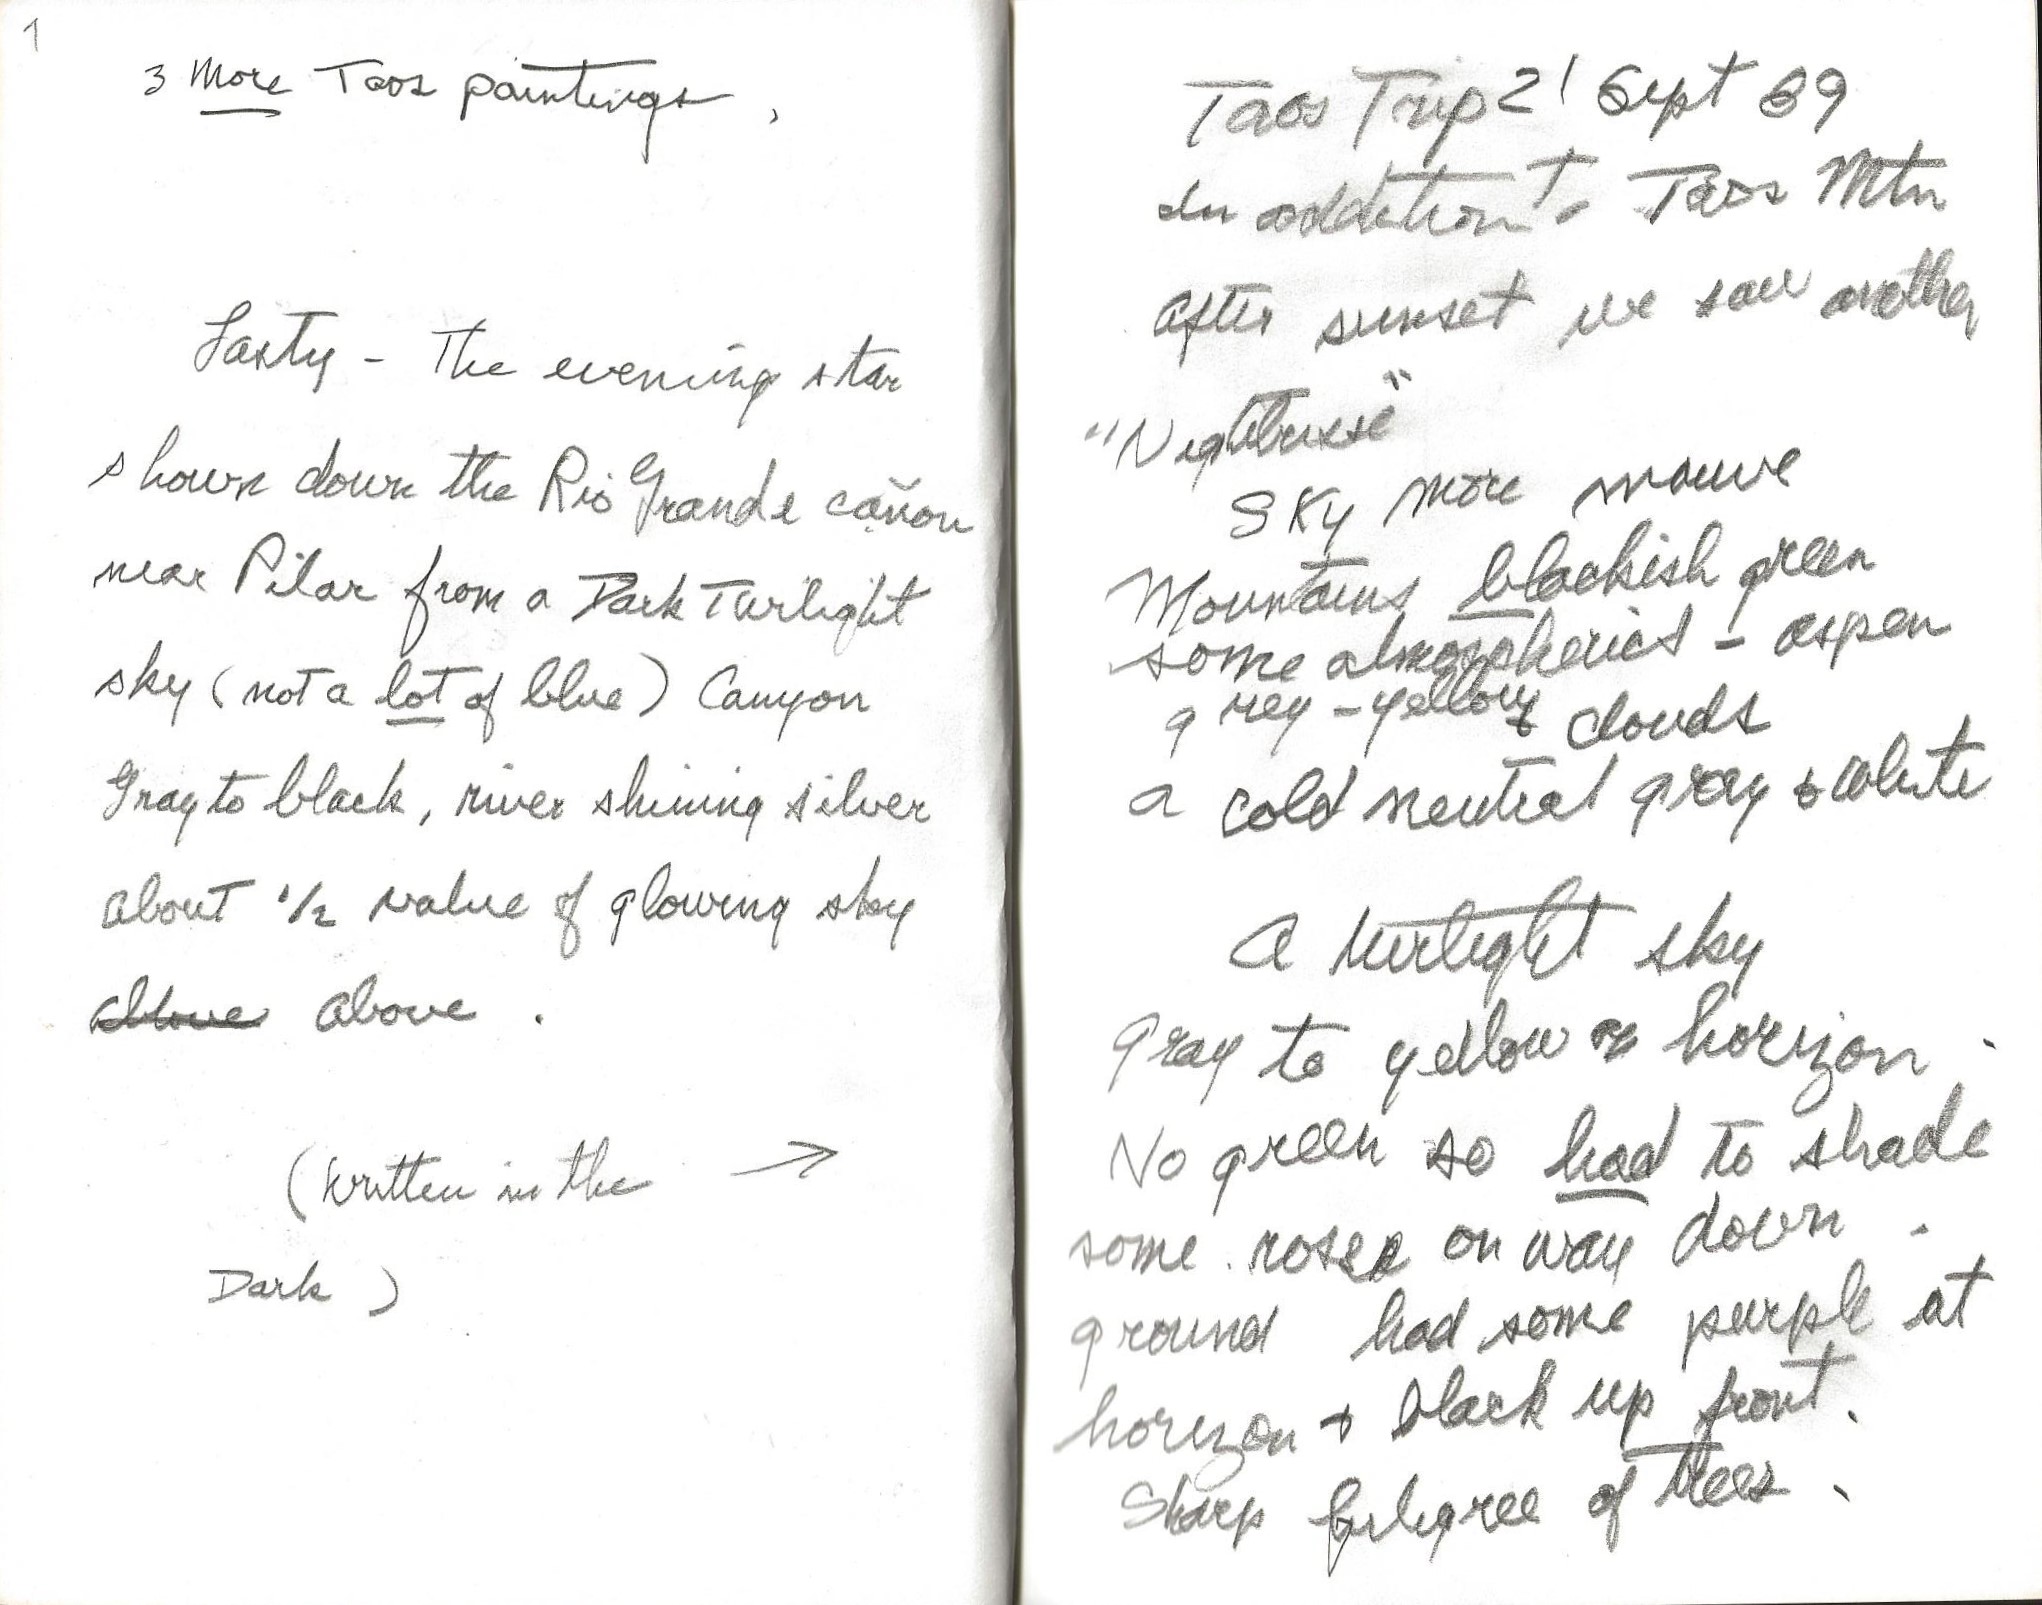 1
3 More Taos paintings,
Lasty - The evening star
shown down the Rio Grande cañon
near Pilar from a Dark Twilight
sky (not a lot of blue) Canyon
Gray to black, river shining silver
about 1/2 value of glowing sky
above above .
(written in the →
Dark )
Taos Trip 21 Sept 89
In addition to Taos Mtn
after sunset we saw another
"Nighthorse"
Sky more mauve
Mountains blackish green
some atmospherics - aspen
grey-yellow clouds
a cold neutral gray & white
A twilight sky
Gray to yellow horizon .
No green so had to shade
some rose on way down .
ground had some purple at
horizon + black up front .
Sharp filigree of trees .